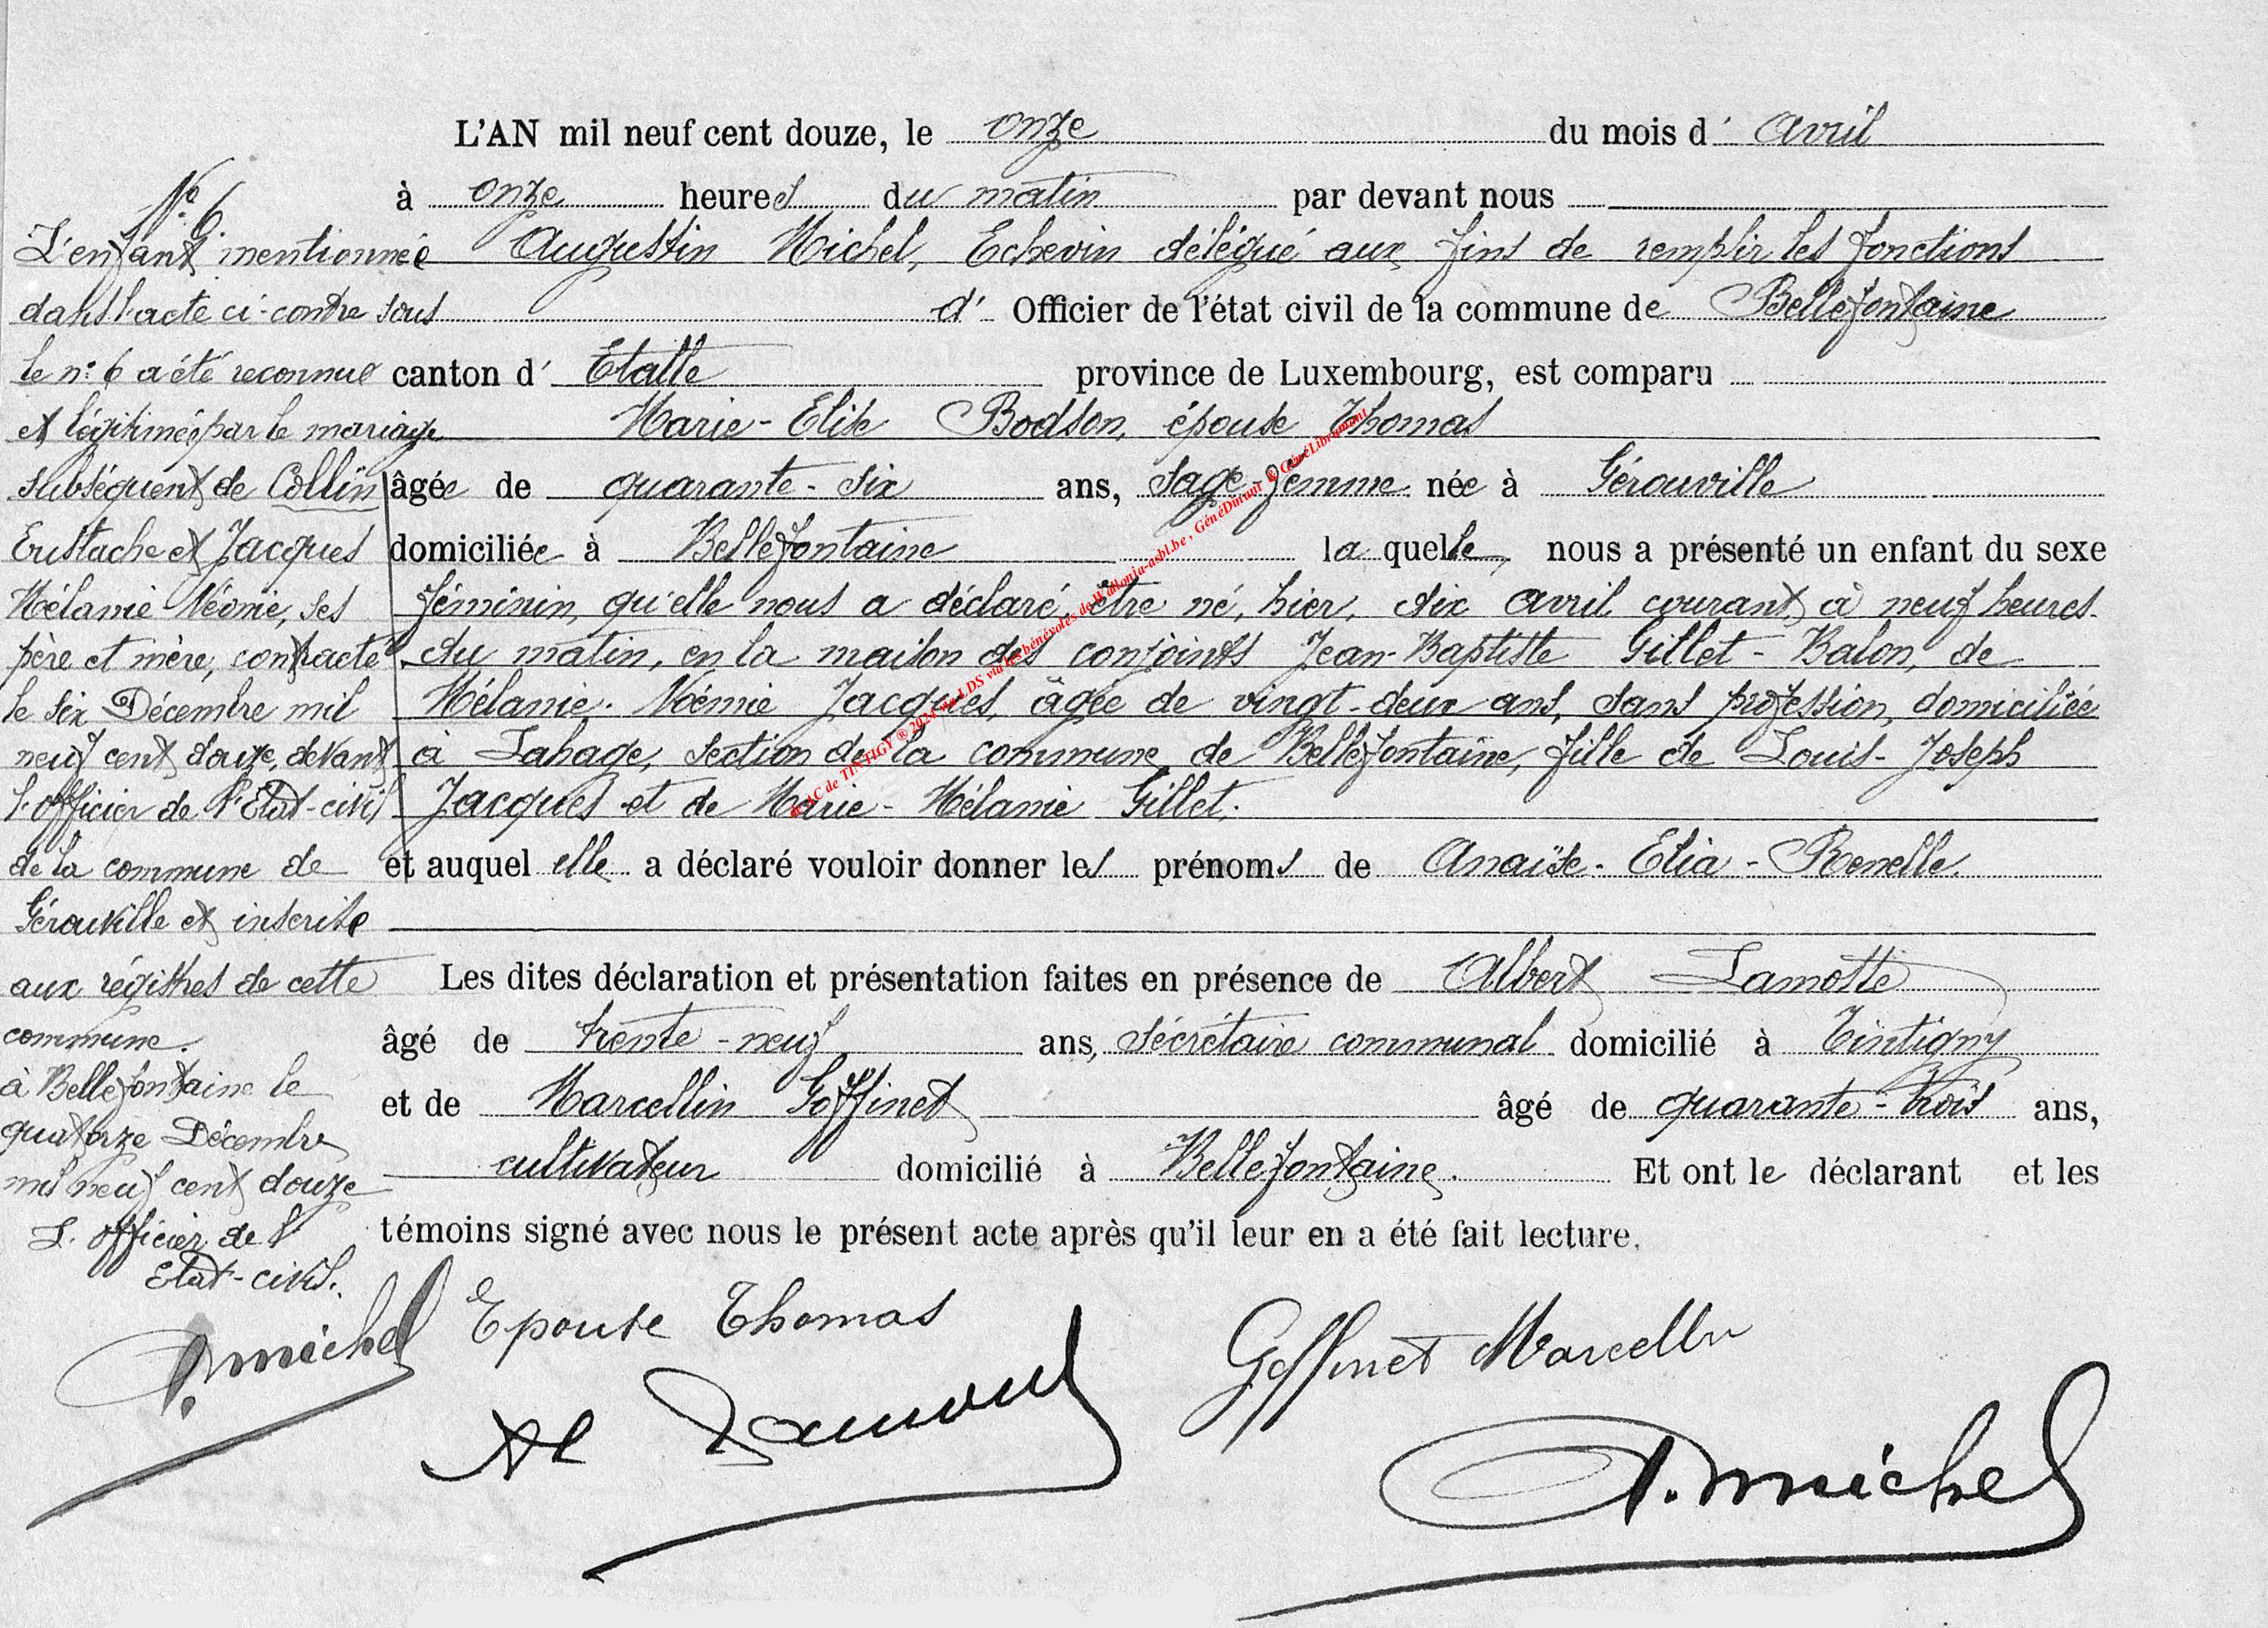 L'AN mil neuf cent douze, le onze du mois d' Avril
à onze heures du matin par devant nous
Augustin Michel, Echevin délégué aux fins de remplir les fonctions
d' Officier de l'état civil de la commune de Bellefontaine
canton d' Etalle province de Luxembourg, est comparu
Marie-Elise Bodson, épouse Thomas
âgée de quarante-six ans, sage-femme née à Gérouville
domiciliée à Bellefontaine laquelle, nous a présenté un enfant du sexe
féminin, qu'elle nous a déclaré être né, hier, dix avril courant, à neuf heures
du matin, en la maison des conjoints Jean-Baptiste Gillet-Balon, de
Mélanie-Noémie Jacques, âgée de vingt-deux ans, sans profession, domiciliée
à Lahage, section de la commune de Bellefontaine, fille de Louis-Joseph
Jacques et de Marie-Mélanie Gillet.
et auquel elle a déclaré vouloir donner les prénoms de Anaïse-Elia-Renelle.
Les dites déclaration et présentation faites en présence de Albert Lamotte
âgé de trente-neuf ans, sécrétaire communal domicilié à Tintigny
et de Marcellin Goffinet âgé de quarante-trois ans,
cultivateur domicilié à Bellefontaine. Et ont le déclarant et les
témoins signé avec nous le présent acte après qu'il leur en a été fait lecture.
Epouse Thomas
Goffinet Marcellin
Al Lamotte
A. Michel
N° 6.
L'enfant mentionnée
dans l'acte ci-contre sous
le n° 6 a été reconnue
et légitimée par le mariage
subséquent de Collin
Eustache et Jacques
Mélanie Noémie, ses
père et mère, contracté
le six Décembre mil
neuf cent douze, devant
l'officier de l'Etat-civil
de la commune de
Gérouville et inscrite
aux régistres de cette
commune.
à Bellefontaine le
quatorze Décembre
mil neuf cent douze
L'officier de l'
Etat-civil.
A. Michel
de AC de TINTIGY ® 2024 via LDS via les bénévoles de Wallonia-asbl.be, GénéDinant & GénéLibramont